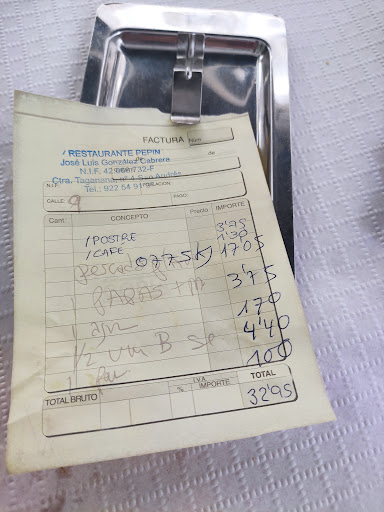 FACTURA Núm.
RESTAURANTE PEPIN de
José Luis González Cabrera
N.I.F. 42
732-F
N.I.F. Ctra. Taganana, nº 4 San Andrés
Tel.: 922 54 91 POBLACION:
CALLE: 9 PAGO:
Cant. CONCEPTO Precio IMPORTE
1 POSTRE 3'75
1 CAFE 1'30
pescado 0775K 17'05
1 PAPAS 3'75
1 agu 1'70
1/2 vin B Se 4'40
1 pan 1'00
TOTAL BRUTO % I.V.A. IMPORTE TOTAL
32'95